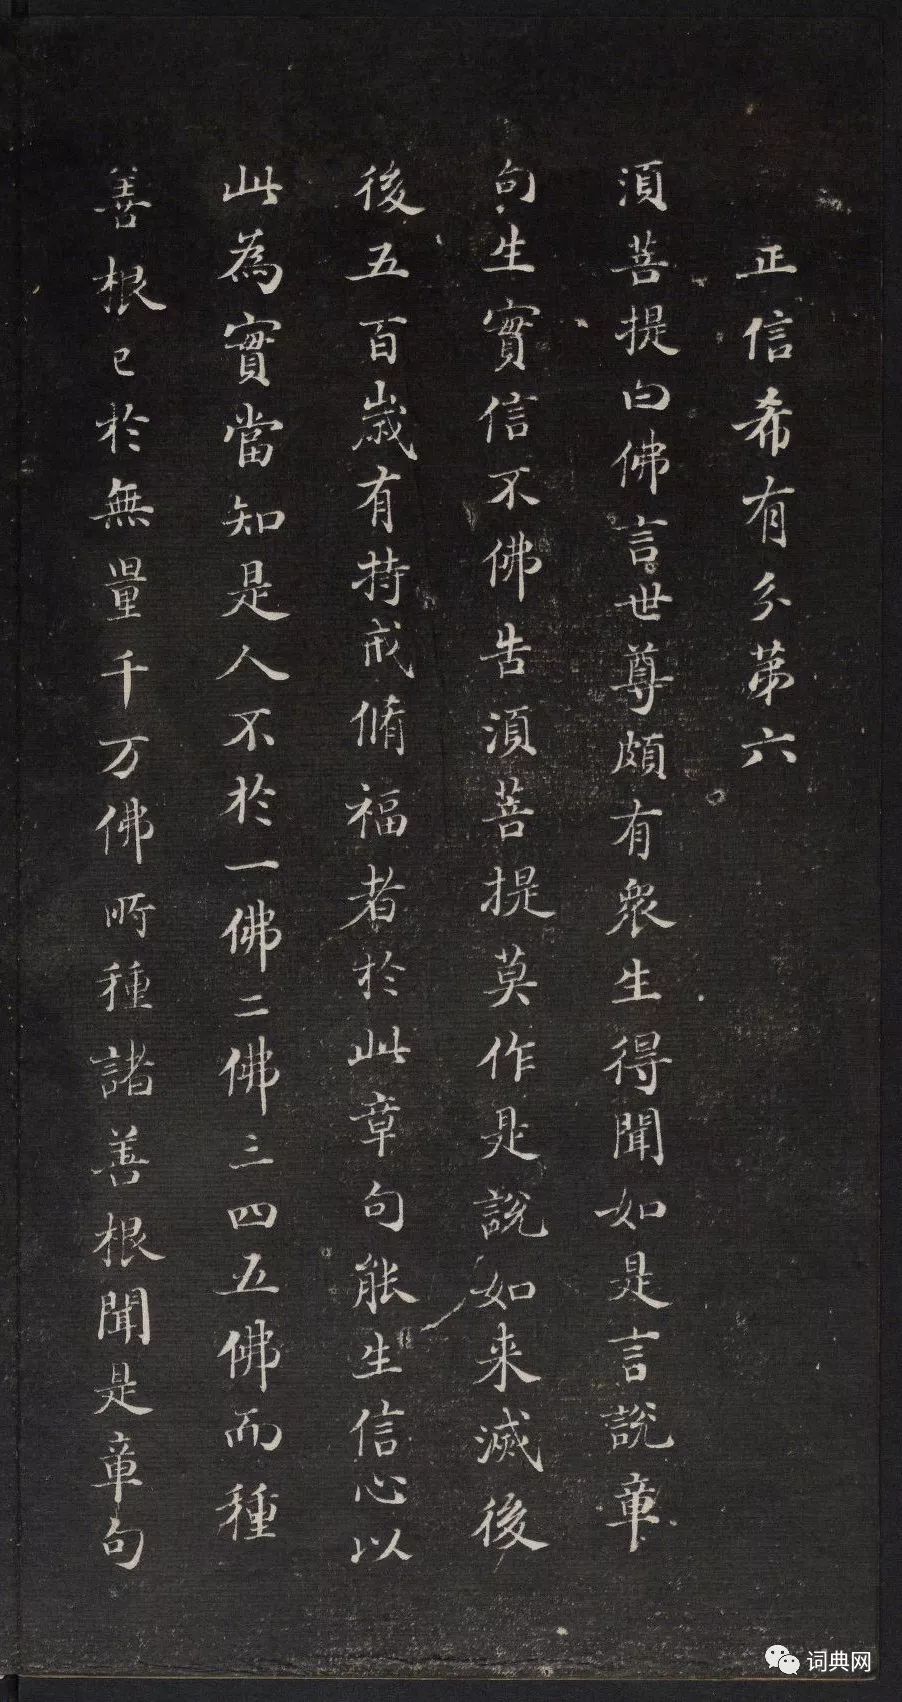 正信希有分第六
須菩提白佛言世尊頗有衆生得聞如是言說章
句生實信不佛告須菩提莫作是說如来滅後
後五百歳有持戒脩福者於此章句能生信心以
此為實當知是人不於一佛二佛三四五佛而種
善根已於無量千万佛所種諸善根聞是章句
词典网